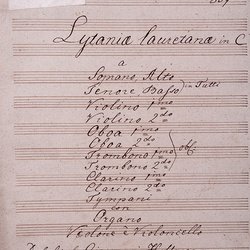 Lytaniæ lauretanæ in C
a
Soprano, Alto
Tenore Basso in Tutti
Violino 1mo
Violino 2do
Oboa 1mo
Oboa 2do
Trombono 1mo obl:
Trombono 2do
Clarino 1mo
Clarino 2do
Tympani
con
Organo
Violone e Violoncello